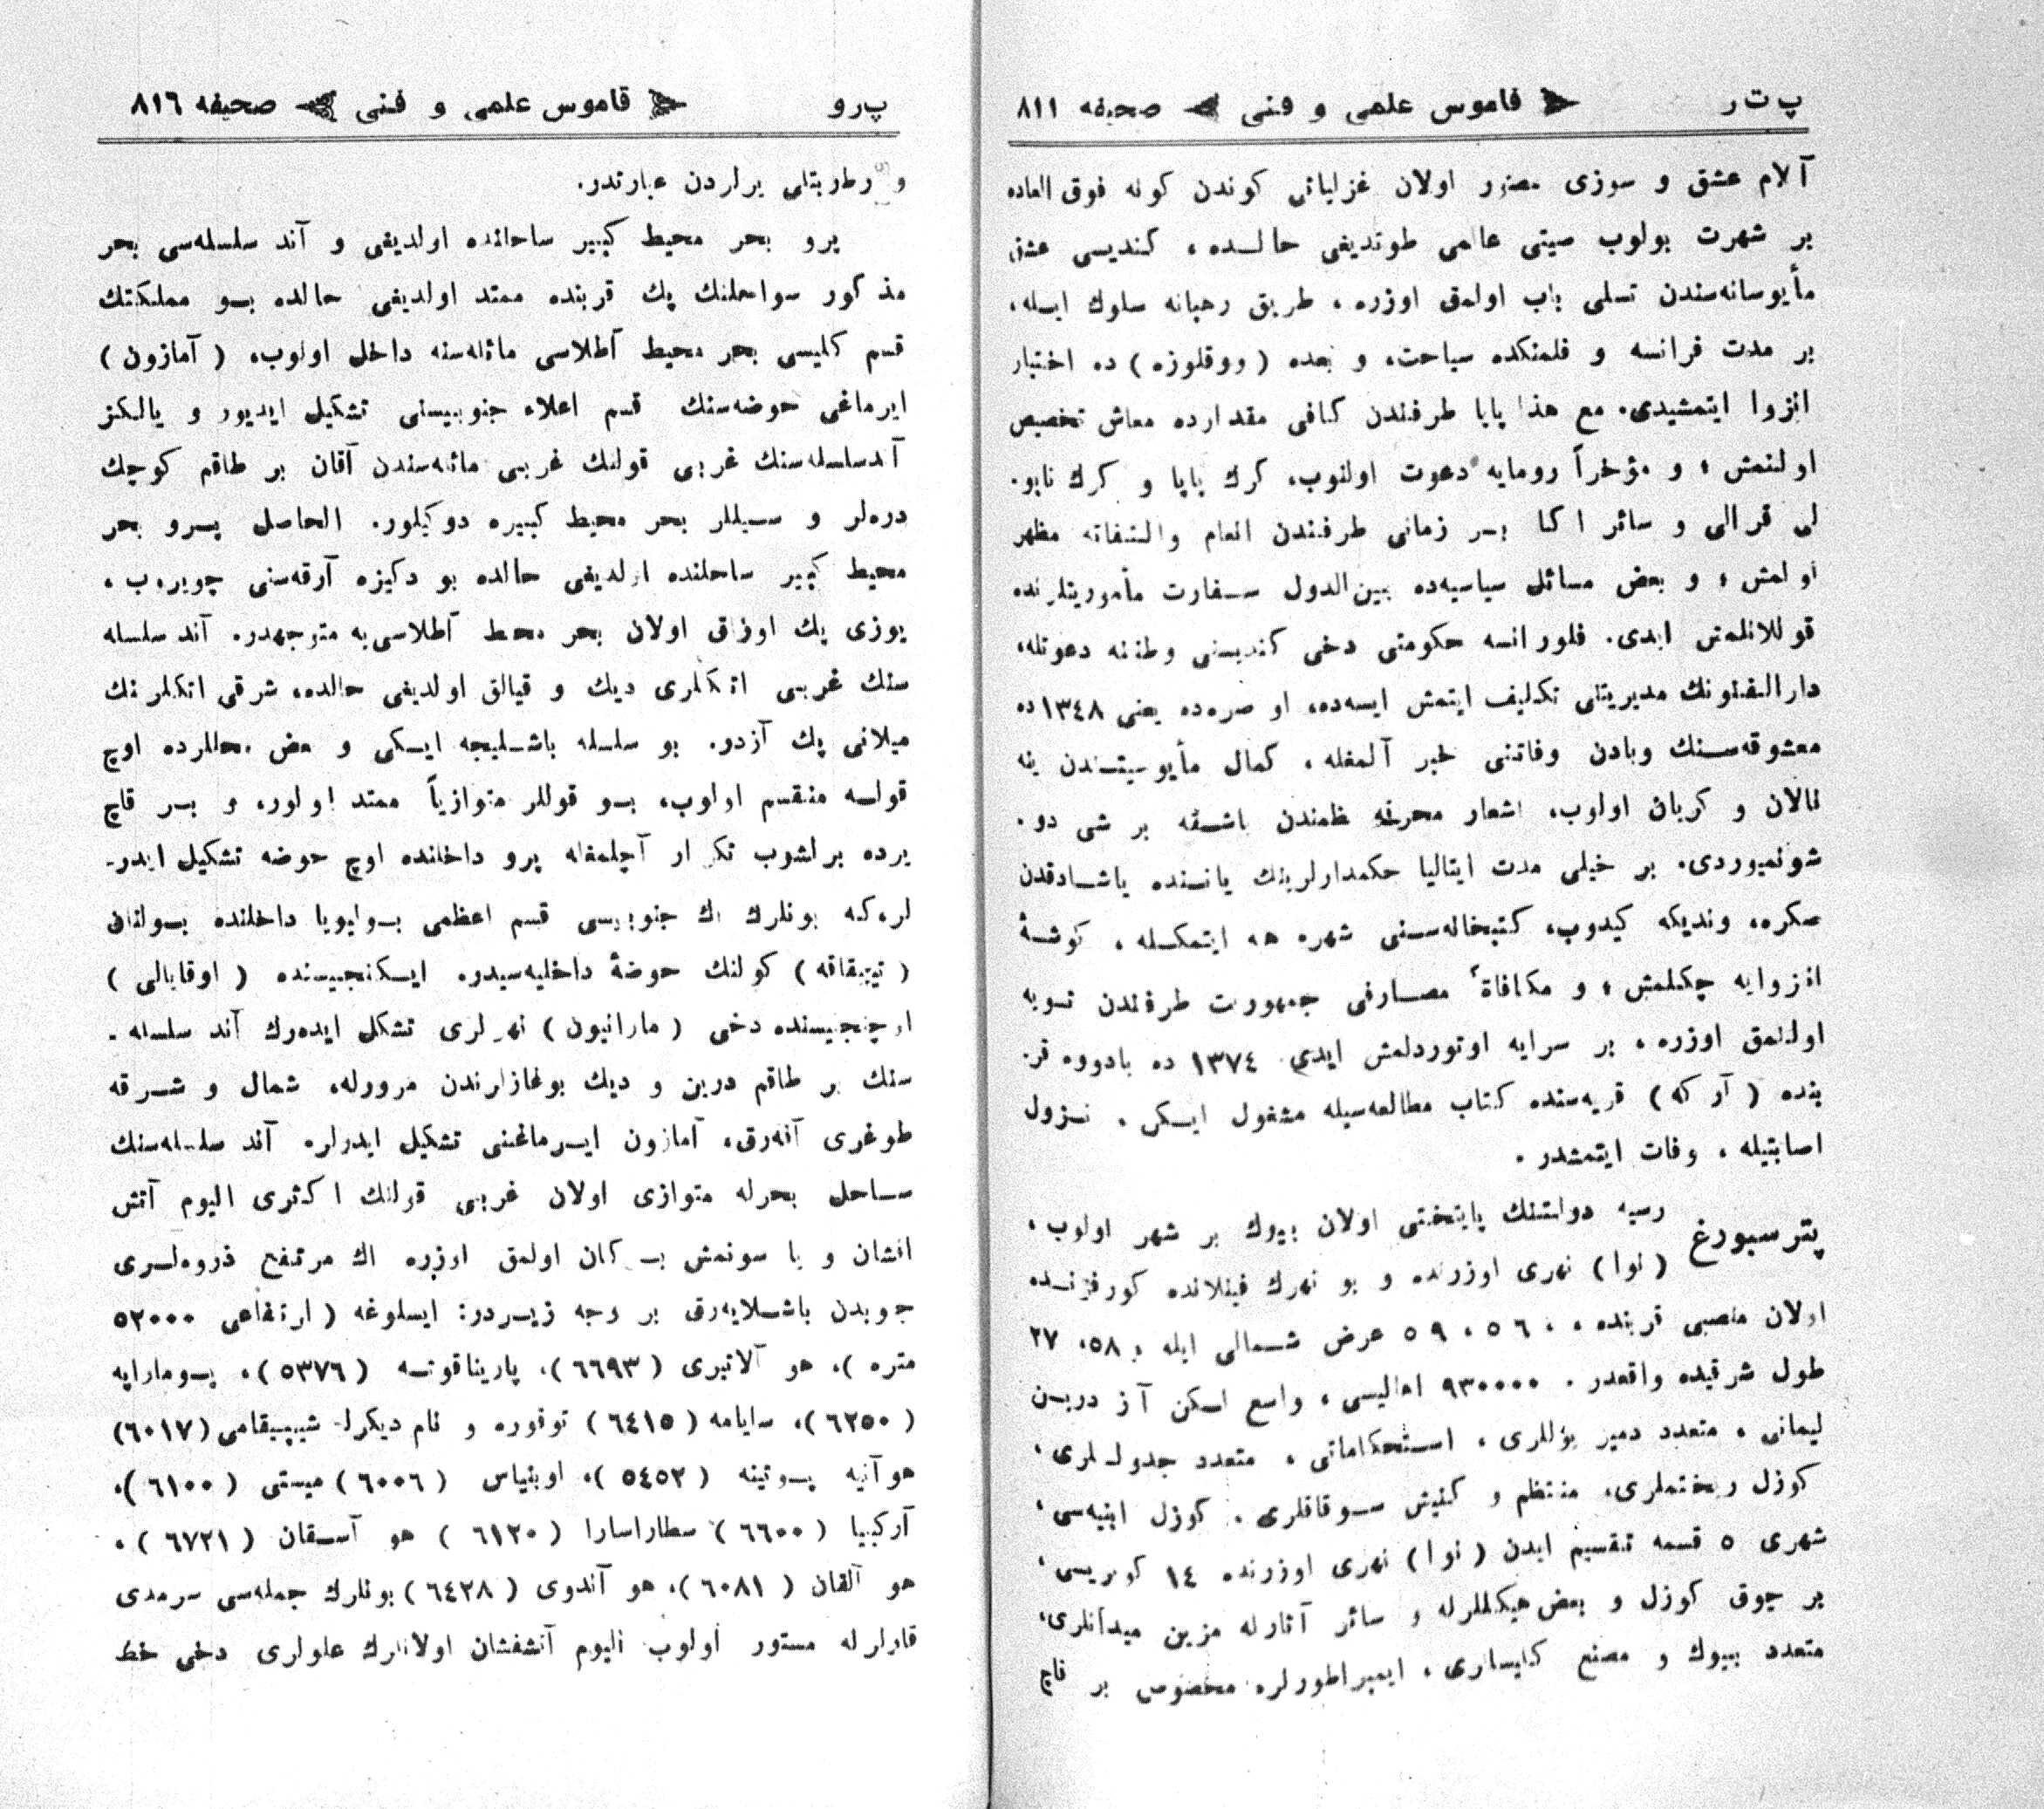 پ ت ر قاموس علمی و فنی صحیفه ٨١١
آلام عشق و سوزی مصور اولان غزلیاتی کوندن کونه فوق العاده
بر شهرت بولوب صیتی عالمی طوتدیغی حالده، کندیسی عشق
مأیوسانه‌سندن تسلی یاب اولمق اوزره، طریق رهبانه سلوك ایله،
بر مدت فرانسه و فلمنکده سیاحت، و بعده (ووقلوزه) ده اختیار
انزوا ایتمشیدی. مع هذا پاپا طرفندن کافی مقدارده معاش تخصیص
اولنمش؛ و مؤخراً رومایه دعوت اولنوب، کرك پاپا و کرك ناپو.
لی قرالی و سائر اکا بر زمانی طرفندن انعام والتفاته مظهر
اولمش؛ و بعض مسائل سیاسیه‌ده بین‌الدول سفارت مأموریتلرنده
قوللانلمش ایدی. فلورانسه حکومتی دخی کندیسنی وطننه دعوتله،
دارالفنونك مدیریتنی تکلیف ایتمش ایسه‌ده، او صره‌ده یعنی ١٣٤٨ ده
معشوقه‌سنك وبادن وفاتنی خبر آلمغله، کمال مأیوسیتندن ینه
نالان و کریان اولوب، اشعار محرقه نظمندن باشقه بر شی دو.
شونمیوردی. بر خیلی مدت ایتالیا حکمدارلرینك یاننده یاشادقدن
صکره، وندیکه کیدوب، کتبخانه‌سنی شهره هبه ایتمکله، کوشۀ
انزوایه چکلمش؛ و مکافاةً مصارفی جمهوریت طرفندن تسویه
اولنمق اوزره، بر سرایه اوتوردلمش ایدی. ١٣٧٤ ده پادووه قر.
بنده (آرکه) قریه‌سنده کتاب مطالعه‌سیله مشغول ایکن، نزول
اصابتیله، وفات ایتمشدر.
پترسبورغ روسیه دولتنك پایتختی اولان بیوك بر شهر اولوب،
(نوا) نهری اوزرنده و بو نهرك فینلانده کورفزنده
اولان منصبی قربنده، ٥٦، ٥٩ عرض شمالی ایله ٥٨، ٢٧
طول شرقیده واقعدر. ٩٣٠٠٠٠ اهالیسی، واسع لکن آز درین
لیمانی، متعدد دمیر یوللری، استحکاماتی، متعدد جدوللری،
کوزل ریختملری، منتظم و کنیش سوقاقلری. کوزل ابنیه‌سی،
شهری ٥ قسمه تقسیم ایدن (نوا) نهری اوزرنده ١٤ کوپریسی،
بر چوق کوزل و بعض هیکللرله و سائر آثارله مزین میدانلری،
متعدد بیوك و مصنع کلیسالری، ایمپراطورلره مخصوص بر قاچ
پ‌رو قاموس علمی و فنی صحیفه ٨١٦
و رطوبتلی یرلردن عبارتدر.
پرو بحر محیط کبیر ساحلنده اولدیغی و آند سلسله‌سی بحر
مذکور سواحلنك پك قربنده ممتد اولدیغی حالده بو مملکتك
قسم کلیسی بحر محیط آطلاسی مائله‌سنه داخل اولوب، (آمازون)
ایرماغی حوضه‌سنك قسم اعلاء جنوبیسنی تشکیل ایدیور و یالکز
آند سلسله‌سنك غربی قولنك غربی مائله‌سندن آقان بر طاقم کوچك
دره‌لر و سیللر بحر محیط کبیره دوکیلور. الحاصل پرو بحر
محیط کبیر ساحلنده اولدیغی حالده بو دکیزه آرقه‌سنی چویروب،
یوزی پك اوزاق اولان بحر محیط آطلاسی‌یه متوجهدر. آند سلسله
سنك غربی اتکلری دیك و قیالق اولدیغی حالده، شرقی اتکلرینك
میلانی پك آزدر. بو سلسله باشلیجه ایکی و بعض محللرده اوچ
قوله منقسم اولوب، بو قوللر متوازیاً ممتد اولور، و بر قاچ
یرده برلشوب تکرار آچلمغله پرو داخلنده اوچ حوضه تشکیل ایدر-
لر، که بونلرك اك جنوبیسی قسم اعظمی بولیویا داخلنده بولنان
(تیتیقاقه) کولنك حوضۀ داخلیه‌سیدر. ایکنجیسنده (اوقایالی)
اوچنجیسنده دخی (مارانیون) نهرلری تشکل ایده‌رك آند سلسله-
سنك بر طاقم درین و دیك بوغازلرندن مرورله، شمال و شرقه
طوغری آقه‌رق، آمازون ایرماغنی تشکیل ایدرلر. آند سلسله‌سنك
ساحل بحرله متوازی اولان غربی قولنك اکثری الیوم آتش
افشان و یا سونمش برکان اولمق اوزره اك مرتفع ذروه‌لری
جنوبدن باشلایه‌رق بر وجه زیردر: ایسلوغه (ارتفاعی ٥٢٠٠٠
متره)، هو آلاتیری (٦٦٩٣)، پاریناقوته (٥٣٧٦)، پوماراپه
(٦٢٥٠)، سایامه (٦٤١٥) توقوره و نام دیکرله شیپیقامی (٦٠١٧)
هوآنیه پوتینه (٥٤٥٢)، اوبنیاس (٦٠٠٦) میستی (٦١٠٠)،
آرکیپا (٦٦٠٠) سطاراسارا (٦١٢٠) هو آسقان (٦٧٢١)،
هو آلقان (٦٠٨١)، هو آندوی (٦٤٢٨) بونلرك جمله‌سی سرمدی
قارلرله مستور اولوب الیوم آتشفشان اولانلرك علولری دخی خط